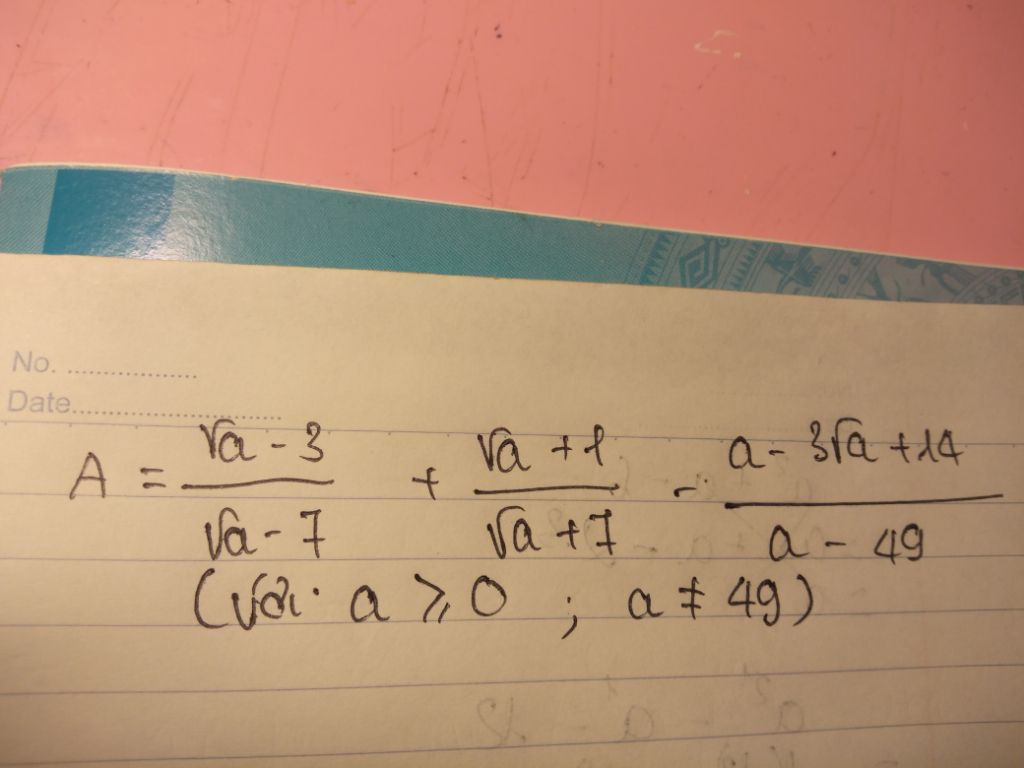 No. ..................
Date.............................
A = \frac{√a - 3}{√a - 7} + \frac{√a + 1}{√a + 7} - \frac{a - 3√a + 14}{a - 49}
(với a ⩾ 0 ; a ≠ 49)